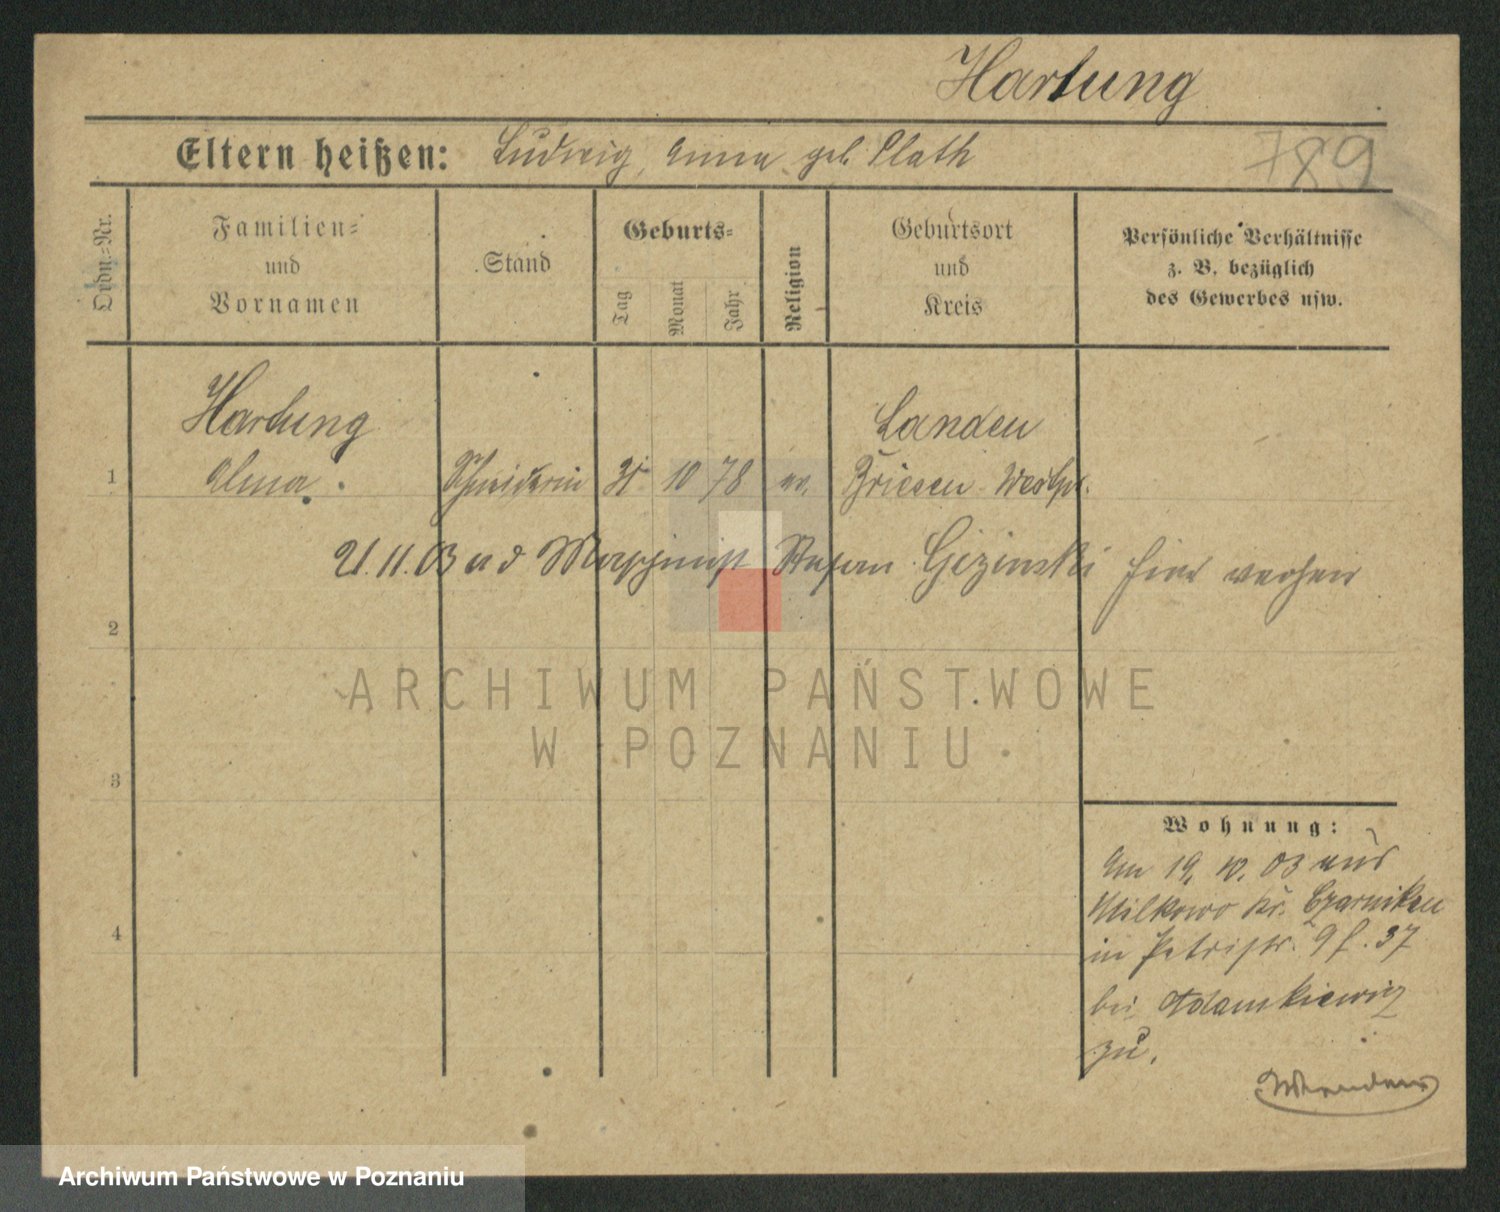 Hartung
Eltern heißen: Ludwig, Anna geb. Plath
789
Ordn.-Nr.
Familien-
und
Vornamen
Stand
Geburts-
Tag
Monat
Jahr
Religion
Geburtsort
und
Kreis
Persönliche Verhältnisse
z. B. bezüglich
des Gewerbes usw.
Hartung
Landen
1 Alma. Schneiderin 31 10 78 ev. Briesen Westpr.
21.11.03 a d Maschinist Stefan Gizinski hier
2
ARCHIWUM PAŃSTWOWE
W POZNANIU
3
Wohnung:
Am 19. 10. 03 aus
Milkowo Kr. Czarnikau
in Petristr. 9 f. 37
4
bei Adamkiewicz
zu.
Archiwum Państwowe w Poznaniu